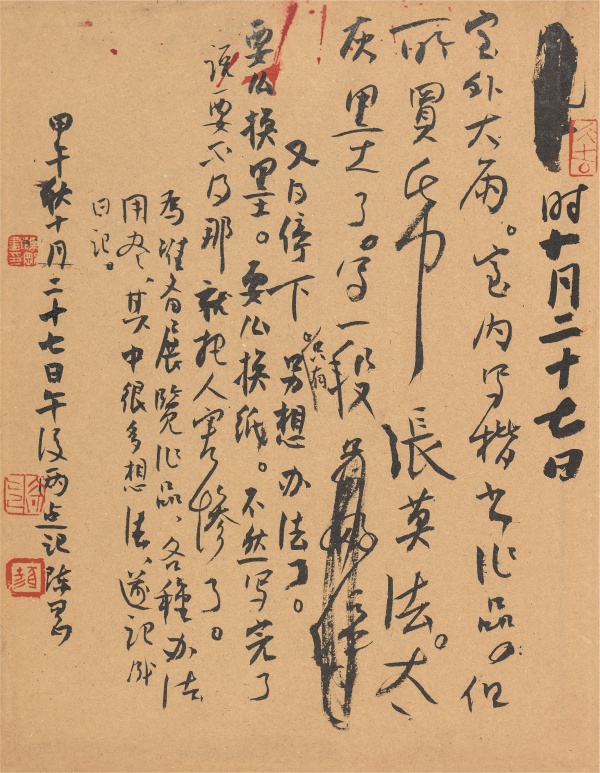 时十月二十七日
室外大雨。室内写楷书作品，但
所買帋張莫法。太
灰墨了。写一段
只有
又得停下另想办法了。
要么换墨。要么换纸。不然写完了
说要不得那就把人害惨了。
为准备展览作品、各種办法
用尽、其中很多想法、遂记成
日记。
甲午秋十月二十七日午後两点记陈